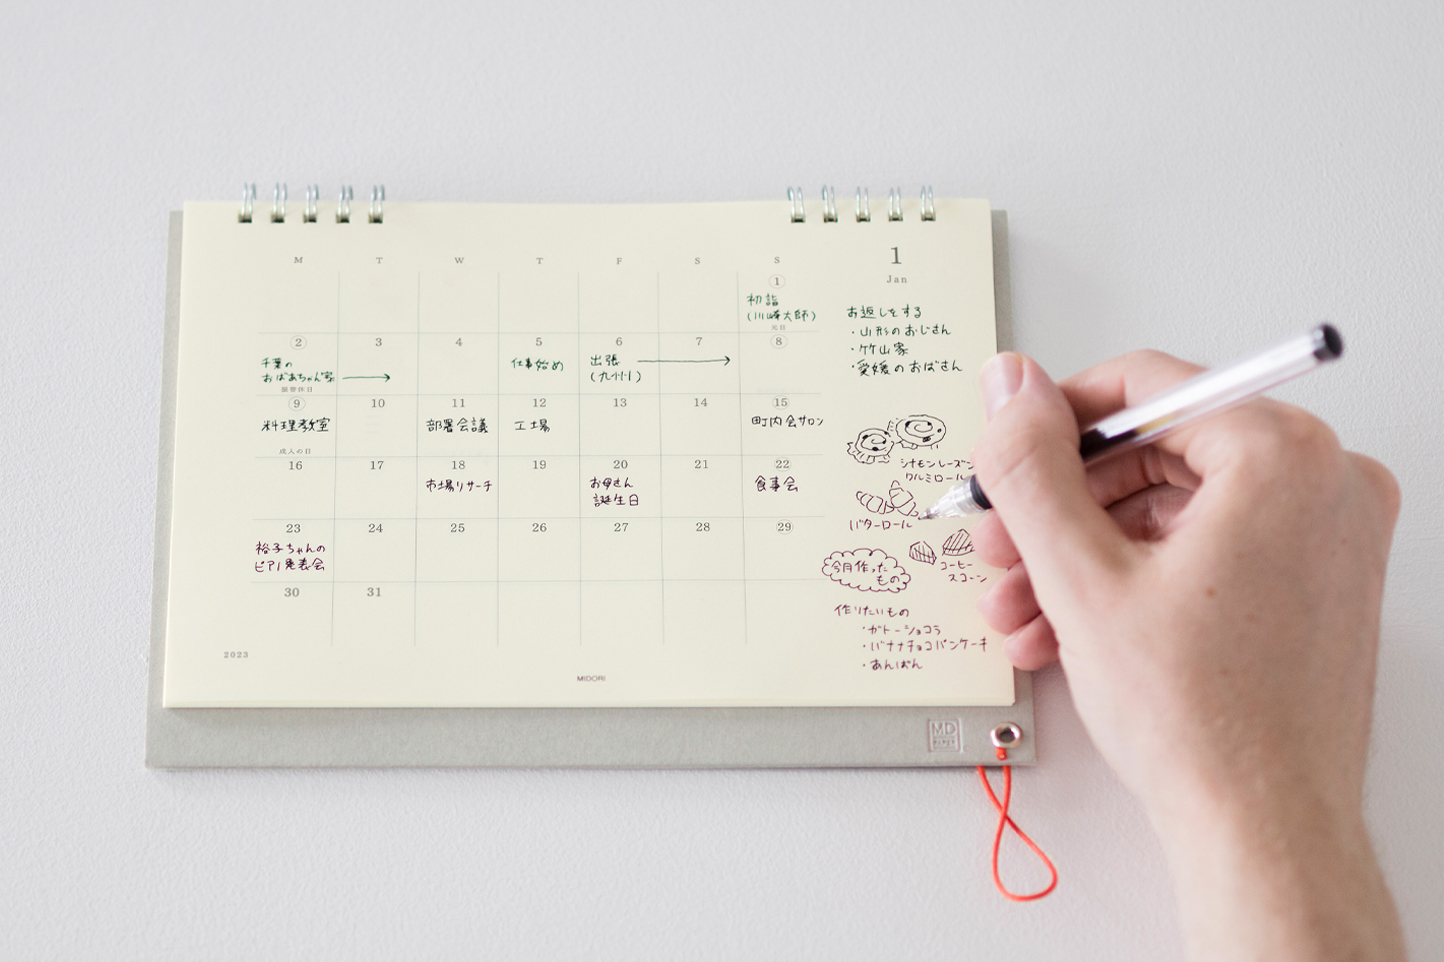 1
Jan
M T W T F S S
1
初詣
(川崎大師)
元日
2 3 4 5 6 7 8
千葉の
おばあちゃん家
振替休日
仕事始め
出張
(九州)
9 10 11 12 13 14 15
料理教室
成人の日
部署会議
工場
町内会サロン
16 17 18 19 20 21 22
市場リサーチ
お母さん
誕生日
食事会
23 24 25 26 27 28 29
裕子ちゃんの
ピアノ発表会
30 31
2023
MIDORI
お返しをする
・山形のおじさん
・竹山家
・愛媛のおばさん
シナモンレーズン
クルミロール
バターロール
コーヒー
スコーン
今月作った
もの
作りたいもの
・ガトーショコラ
・バナナチョコパンケーキ
・あんぱん
MD
PAPER